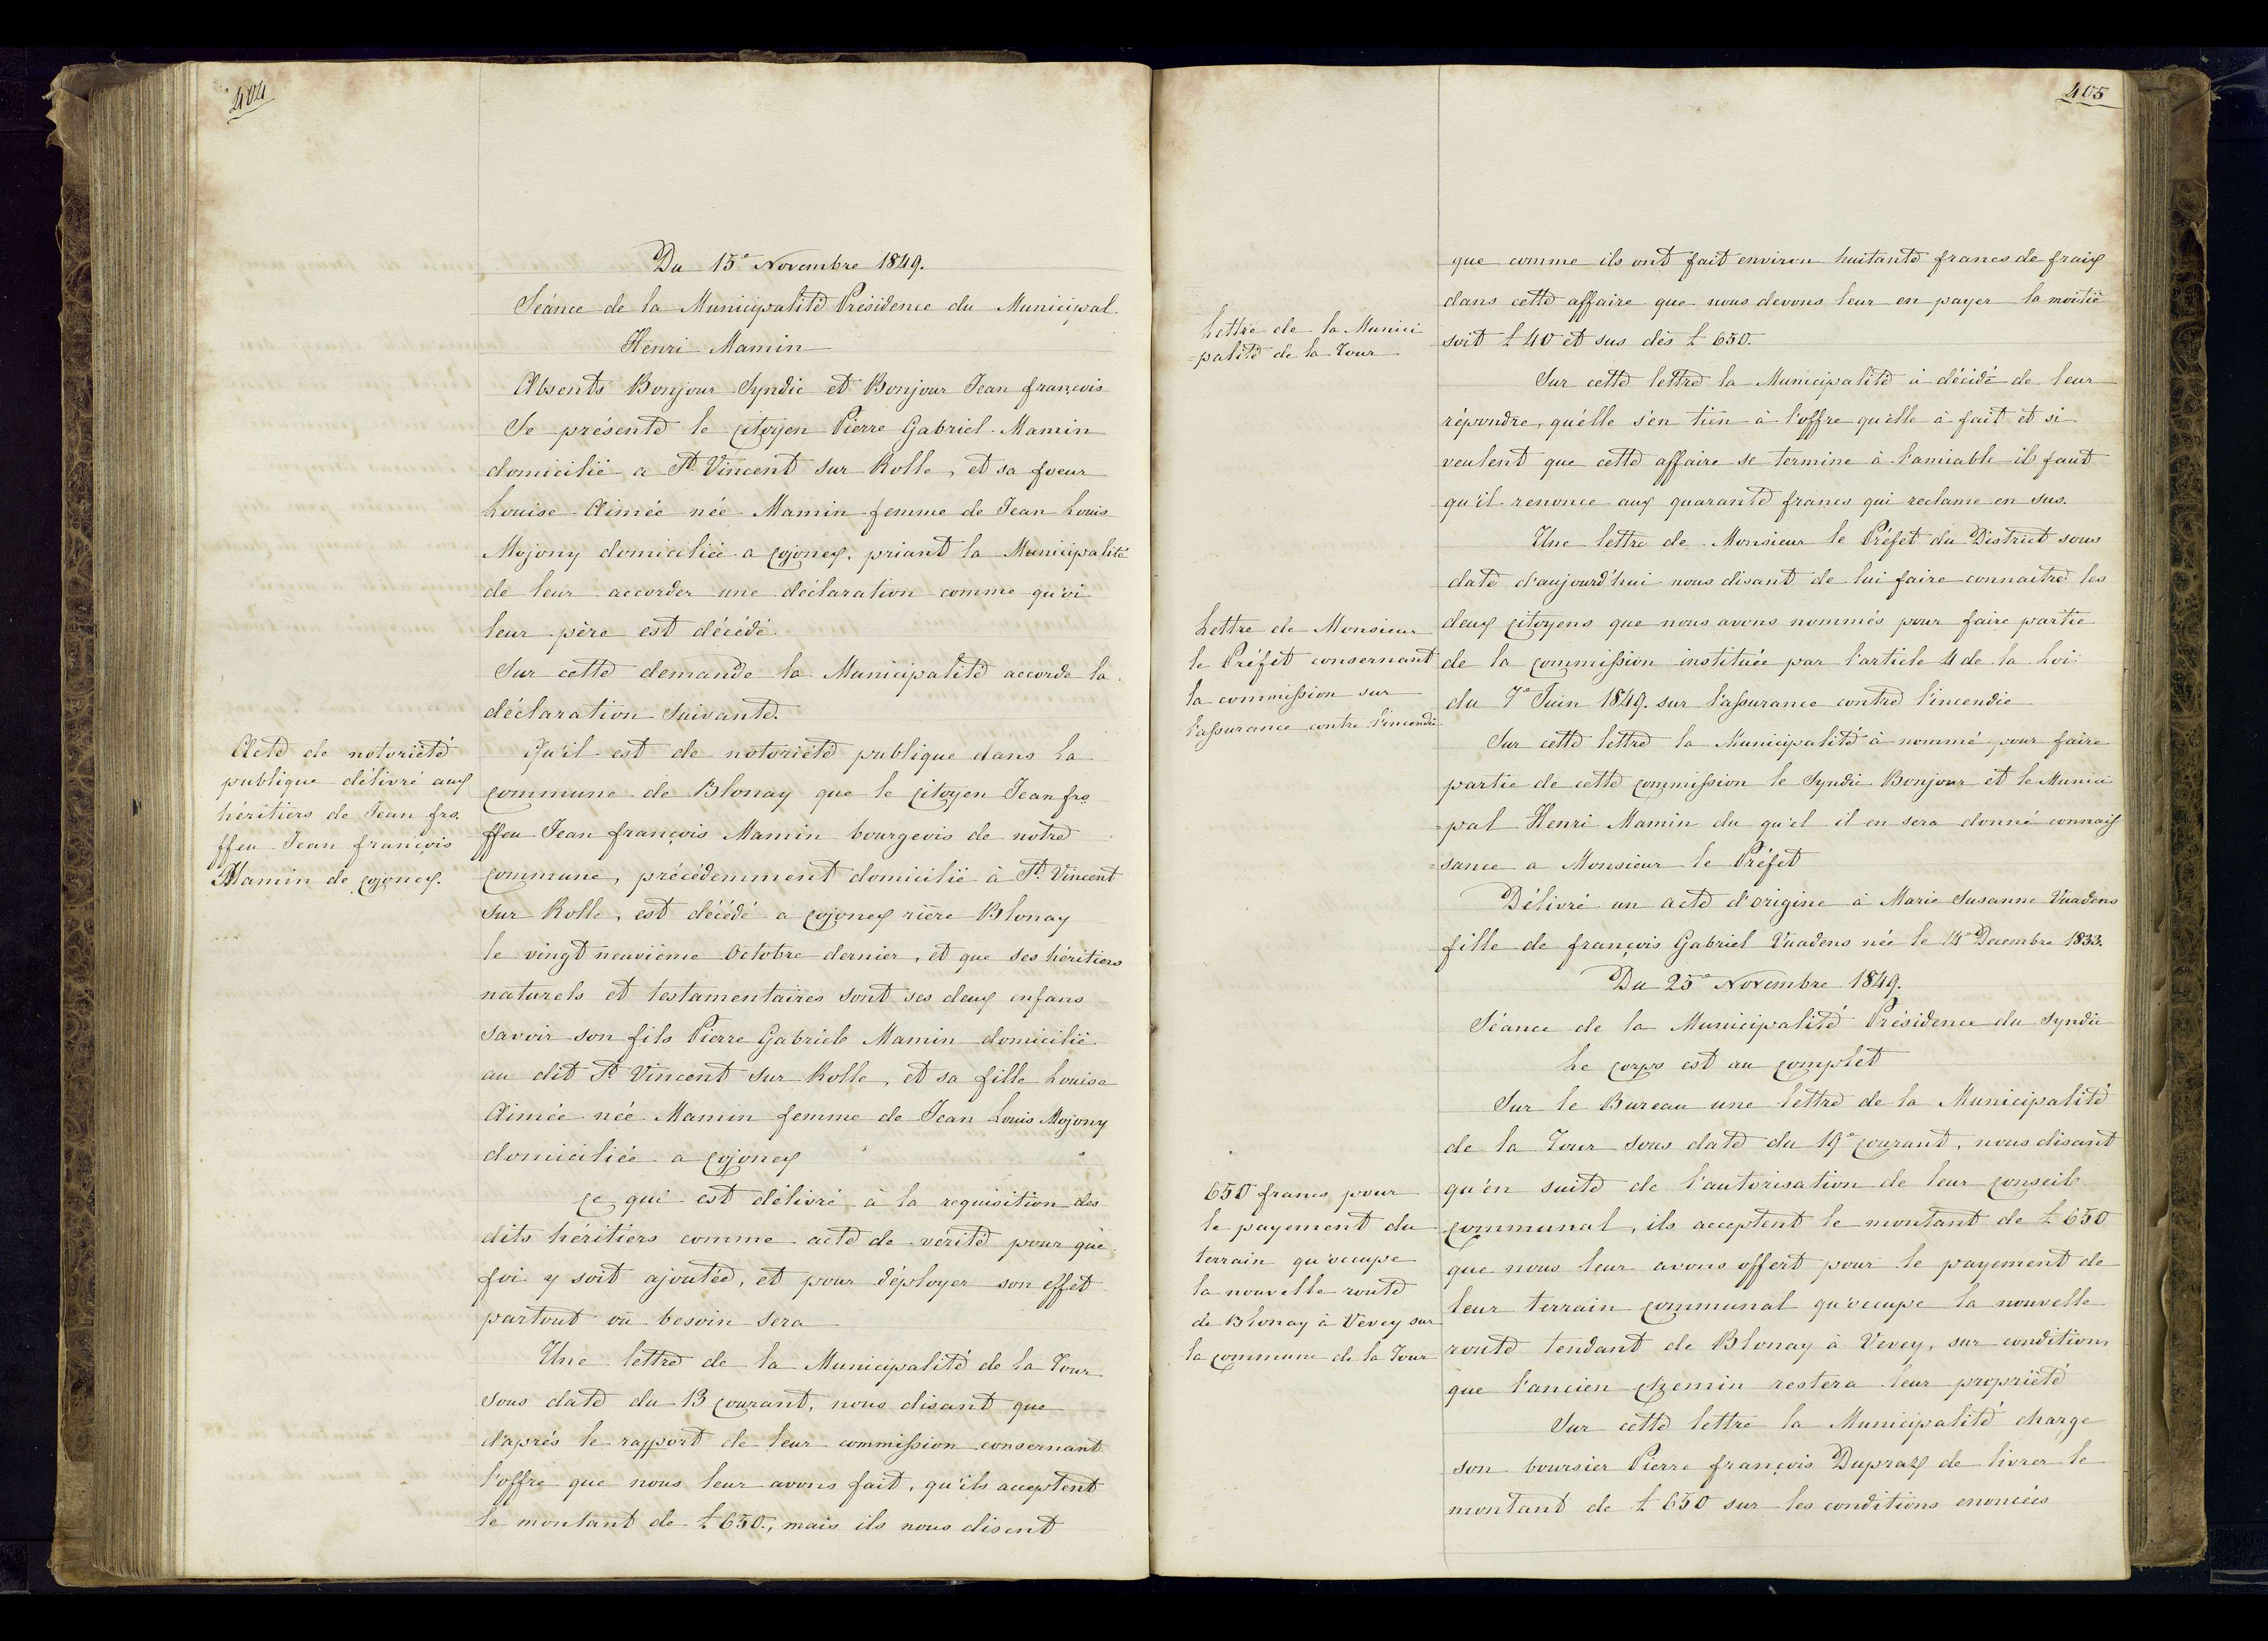 404
Du 15e Novembre 1849.
Séance de la Municipalité Présidence du Municipal
Henri Mamin
Absents Bonjour Syndic et Bonjour Jean françois
Se présente le citoyen Pierre Gabriel Mamin
domicilié a St Vincent sur Rolle, et sa soeur
Louise Aimée née Mamin femme de Jean Louis
Mojony domiciliée a cojonex, priant la Municipalité
de leur accorder une déclaration comme qu'oi
leur père est décédé.
Sur cette demande la Municipalité accorde la
déclaration suivante.
Acte de notoriété
publique délivré aux
héritiers de Jean frs.
ffeu Jean françois
Mamin de cojonex.
Qu'il est de notoriété publique dans la
commune de Blonay que le citoyen Jean frs
ffeu Jean françois Mamin bourgeois de notre
commune, précédemment domicilié à St Vincent
sur Rolle, est décédé a cojonex rière Blonay
le vingt neuvième Octobre dernier, et que ses héritiers
naturels et testamentaires sont ses deux enfans
savoir son fils Pierre Gabriel Mamin domicilié
au dit St Vincent sur Rolle, et sa fille Louise
Aimée née Mamin femme de Jean Louis Mojony
domiciliée a cojonex
ce qui est délivré à la requisition des
dits héritiers comme acte de vérité pour que
foi y soit ajoutée, et pour déployer son effet
partout où besoin sera
Une lettre de la Municipalité de la Tour
sous date du 13 courant, nous disant que
d'après le rapport de leur commission consernant
l'offre que nous leur avons fait, qu'ils acceptent
le montant de £ 650., mais ils nous disent
405
que comme ils ont fait environ huitante francs de fraix
dans cette affaire que nous devons leur en payer la moitié
soit £ 40 et sus dès £ 650.
Lettre de la Munici
=palité de la Tour
Sur cette lettre la Municipalité à décidé de leur
répondre, qu'élle s'en tien à l'offre qu'elle à fait et si
veulent que cette affaire se termine à l'amiable il faut
qu'il renonce aux quarante francs qui reclame en sus.
Une lettre de Monsieur le Préfet du District sous
date d'aujourd'hui nous disant de lui faire connaitre les
deux citoyens que nous avons nommés pour faire partie
de la commission instituée par l'article 4 de la Loi
du 7e Juin 1849. sur l'assurance contre l'incendie
Lettre de Monsieur
le Préfet consernant
la commission sur
l'assurance contre l'incendie.
Sur cette lettre la Municipalité à nommé pour faire
partie de cette commission le Syndic Bonjour et le Munici
=pal Henri Mamin du qu'el il en sera donné connais
=sance a Monsieur le Préfet
Délivré un acte d'origine à Marie Susanne Vuadens
fille de françois Gabriel Vuadens née le 14e Decembre 1833.
Du 25e Novembre 1849.
Séance de la Municipalité Présidence du Syndic
Le corps est au complet
Sur le Bureau une lettre de la Municipalité
de la Tour sous date du 19e courant, nous disant
qu'en suite de l'autorisation de leur conseil
communal, ils acceptent le montant de £ 650
que nous leur avons offert pour le payement de
leur terrain communal qu'occupe la nouvelle
route tendant de Blonay à Vevey, sur conditions
que l'ancien chemin restera leur propriété
650 francs pour
le payement du
terrain qu'occupe
la nouvelle route
de Blonay à Vevey sur
la commune de la Tour
Sur cette lettre la Municipalité charge
son boursier Pierre françois Dupraz de livrer le
montant de £ 650 sur les conditions enoncées